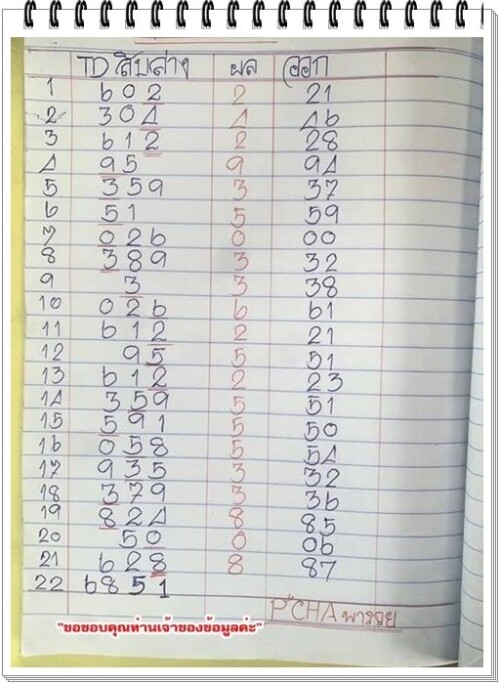 TD สิบล่าง ผล ออก
1 602 2 21
2 304 4 46
3 612 2 28
4 95 9 94
5 359 3 37
6 51 5 59
7 026 0 00
8 389 3 32
9 3 3 38
10 026 6 61
11 612 2 21
12 95 5 51
13 612 2 23
14 359 5 51
15 591 5 50
16 058 5 54
17 935 3 32
18 379 3 36
19 824 8 85
20 50 0 06
21 628 8 87
22 6851
P"CHA พารวย
"ขอขอบคุณท่านเจ้าของข้อมูลค่ะ"